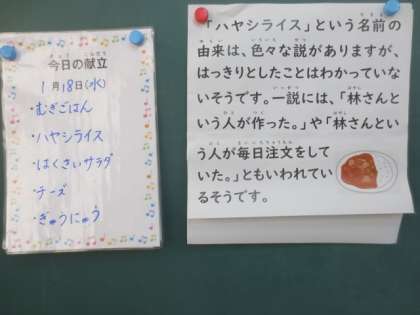 今日の献立
1月18日(水)
・むぎごはん
・ハヤシライス
・はくさいサラダ
・チーズ
・ぎゅうにゅう
「ハヤシライス」という名前の
由来は、色々な説がありますが、
はっきりとしたことはわかってい
ないそうです。一説には、「林さんと
いう人が作った。」や「林さんとい
う人が毎日注文をして
いた。」ともいわれてい
るそうです。